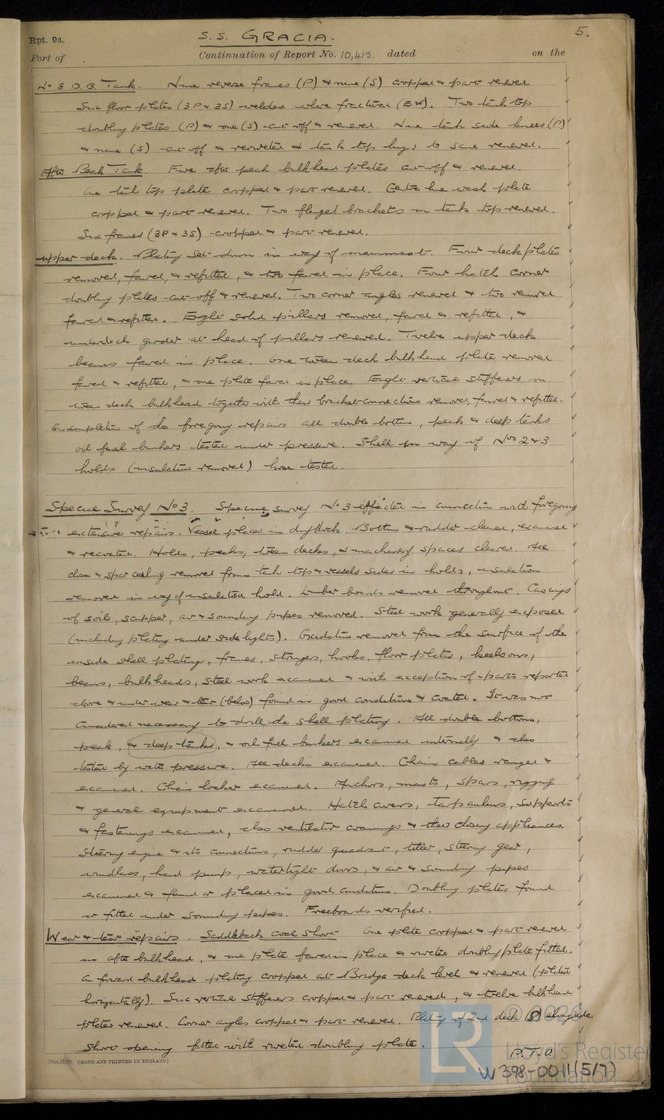 Rpt. 9a.
S.S. GRACIA.
5.
Port of Continuation of Report No. 10,415. dated on the
No 8 D.B. Tank. Nine reverse frames (P) & nine (S) cropped & part renewed
Six floor plates (3P & 3S) welded where fractured (EW). Two tank top
doubling plates (P) & one (S) cut off & renewed. Nine tank side knees (P)
& nine (S) cut off & reriveted & tank top lugs to same renewed.
After Peak Tank. Five after peak bulkhead plates cut off & renewed.
One tank top plate cropped & part renewed. Centre line wash plate
cropped & part renewed. Two flanged brackets on tank top renewed.
Six frames (3P & 3S) cropped & part renewed.
Upper deck. Plating set down in way of mainmast. Four deck plates
removed, faired, & refitted, & two faired in place. Four hatch corner
doubling plates cut off & renewed. Two corner angles renewed & two removed
faired & refitted. Eight solid pillars removed, faired & refitted, &
underdeck girder at head of pillars renewed. Twelve upper deck
beams faired in place. One tween deck bulkhead plate removed
faired & refitted, & one plate faired in place. Eight vertical stiffeners on
tween deck bulkhead together with their bracket connections removed, faired & refitted.
On completion of the foregoing repairs all double bottom, peak & deep tanks
oil fuel bunkers tested under pressure. Shell in way of Nos 2 & 3
holds (insulation removed) hose tested.
Special Survey No 3. Special survey No 3 effected in connection with foregoing
extensive repairs. Vessel placed in drydock. Bottom & rudder cleaned, examined
& recoated. Holds, peaks, tween decks, & machinery spaces cleared. All
close & spar ceiling removed from tank top & vessels sides in holds, insulation
removed in way of insulated hold. Limber boards removed throughout. Casings
of soil, scupper, air & sounding pipes removed. Steel work generally exposed
(including plating under side lights). Oxidation removed from the surface of the
inside shell plating, frames, stringers, hooks, floor plates, keelsons,
beams, bulkheads, steel work examined & with exception of parts reported
above & under wear & tear (below) found in good condition & coated. It was not
considered necessary to drill the shell plating. All double bottoms,
peak, & deep tanks, & oil fuel bunkers examined internally & also
tested by water pressure. All decks examined. Chain cables ranged &
examined. Chain locker examined. Anchors, masts, spars, rigging
& general equipment examined. Hatch covers, tarpaulins, supports
& fastenings examined, also ventilator coamings & their closing appliances.
Steering engine & its connections, rudder quadrant, tiller, steering gear,
windlass, hand pump, watertight doors, & air & sounding pipes
examined & found or placed in good condition. Doubling plates found
or fitted under sounding pipes. Freeboards verified.
Wear & tear repairs. Saddleback Coal Shoot One plate cropped & part renewed
in after bulkhead, & one plate faired in place & riveted doubling plate fitted.
A forward bulkhead plating cropped at Bridge deck level & renewed (plated
horizontally). Six vertical stiffeners cropped & part renewed, & twelve bulkhead
plates renewed. Corner angles cropped & part renewed. Plating of 2nd deck (P) alongside
Shoot opening fitted with riveted doubling plate.
P.T.O
(MADE AND PRINTED IN ENGLAND)
© 2020
LR
Lloyd's Register
Foundation
W398-0011(5/7)